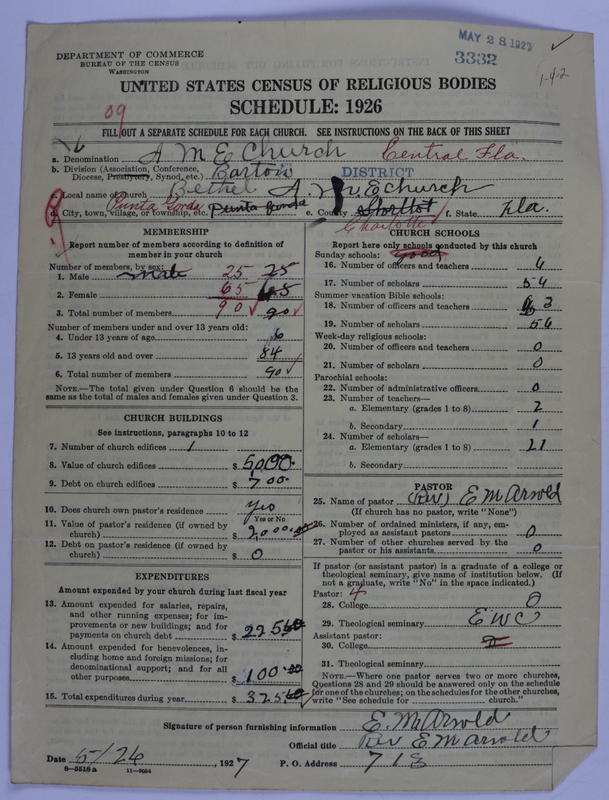 MAY 28 1927
3332
1-4-2
DEPARTMENT OF COMMERCE
BUREAU OF THE CENSUS
WASHINGTON
UNITED STATES CENSUS OF RELIGIOUS BODIES
SCHEDULE: 1926
09
FILL OUT A SEPARATE SCHEDULE FOR EACH CHURCH. SEE INSTRUCTIONS ON THE BACK OF THIS SHEET
a. Denomination A M E Church Central Fla.
b. Division (Association, Conference, Diocese, Presbytery, Synod, etc.) Bartow DISTRICT
c. Local name of church Bethel A. M. E church
d. City, town, village, or township, etc. Punta Gorda Punta Gorda e. County Charlotte f. State Fla.
MEMBERSHIP
Report number of members according to definition of
member in your church
Number of members, by sex:
1. Male male 25 25
2. Female 65 65
3. Total number of members 90 90
Number of members under and over 13 years old:
4. Under 13 years of age 6
5. 13 years old and over 84
6. Total number of members 90
NOTE.—The total given under Question 6 should be the
same as the total of males and females given under Question 3.
CHURCH BUILDINGS
See instructions, paragraphs 10 to 12
7. Number of church edifices 1
8. Value of church edifices $ 5000.
9. Debt on church edifices $ 700.
10. Does church own pastor's residence yes
Yes or No
11. Value of pastor's residence (if owned by
church) $ 2000.00
12. Debt on pastor's residence (if owned by
church) $ 0
EXPENDITURES
Amount expended by your church during last fiscal year
13. Amount expended for salaries, repairs,
and other running expenses; for im-
provements or new buildings; and for
payments on church debt $
14. Amount expended for benevolences, in-
cluding home and foreign missions; for
denominational support; and for all
other purposes $ 100.00
15. Total expenditures during year $
CHURCH SCHOOLS
Report here only schools conducted by this church
Sunday schools: good
16. Number of officers and teachers 6
17. Number of scholars 54
Summer vacation Bible schools:
18. Number of officers and teachers 3
19. Number of scholars 56
Week-day religious schools:
20. Number of officers and teachers 0
21. Number of scholars 0
Parochial schools:
22. Number of administrative officers 0
23. Number of teachers—
a. Elementary (grades 1 to 8) 2
b. Secondary 1
24. Number of scholars—
a. Elementary (grades 1 to 8) 21
b. Secondary
PASTOR
25. Name of pastor (Rev) E M Arnold
(If church has no pastor, write "None")
26. Number of ordained ministers, if any, em-
ployed as assistant pastors 0
27. Number of other churches served by the
pastor or his assistants 0
If pastor (or assistant pastor) is a graduate of a college or
theological seminary, give name of institution below. (If
not a graduate, write "No" in the space indicated.)
Pastor: 4
28. College 0
29. Theological seminary E W C
Assistant pastor:
30. College
31. Theological seminary
NOTE.—Where one pastor serves two or more churches,
Questions 28 and 29 should be answered only on the schedule
for one of the churches; on the schedules for the other churches,
write "See schedule for church."
Signature of person furnishing information E. M. Arnold
Official title Rev E M Arnold
Date 5/26, 1927 P. O. Address 713
8—5518a 11—9664